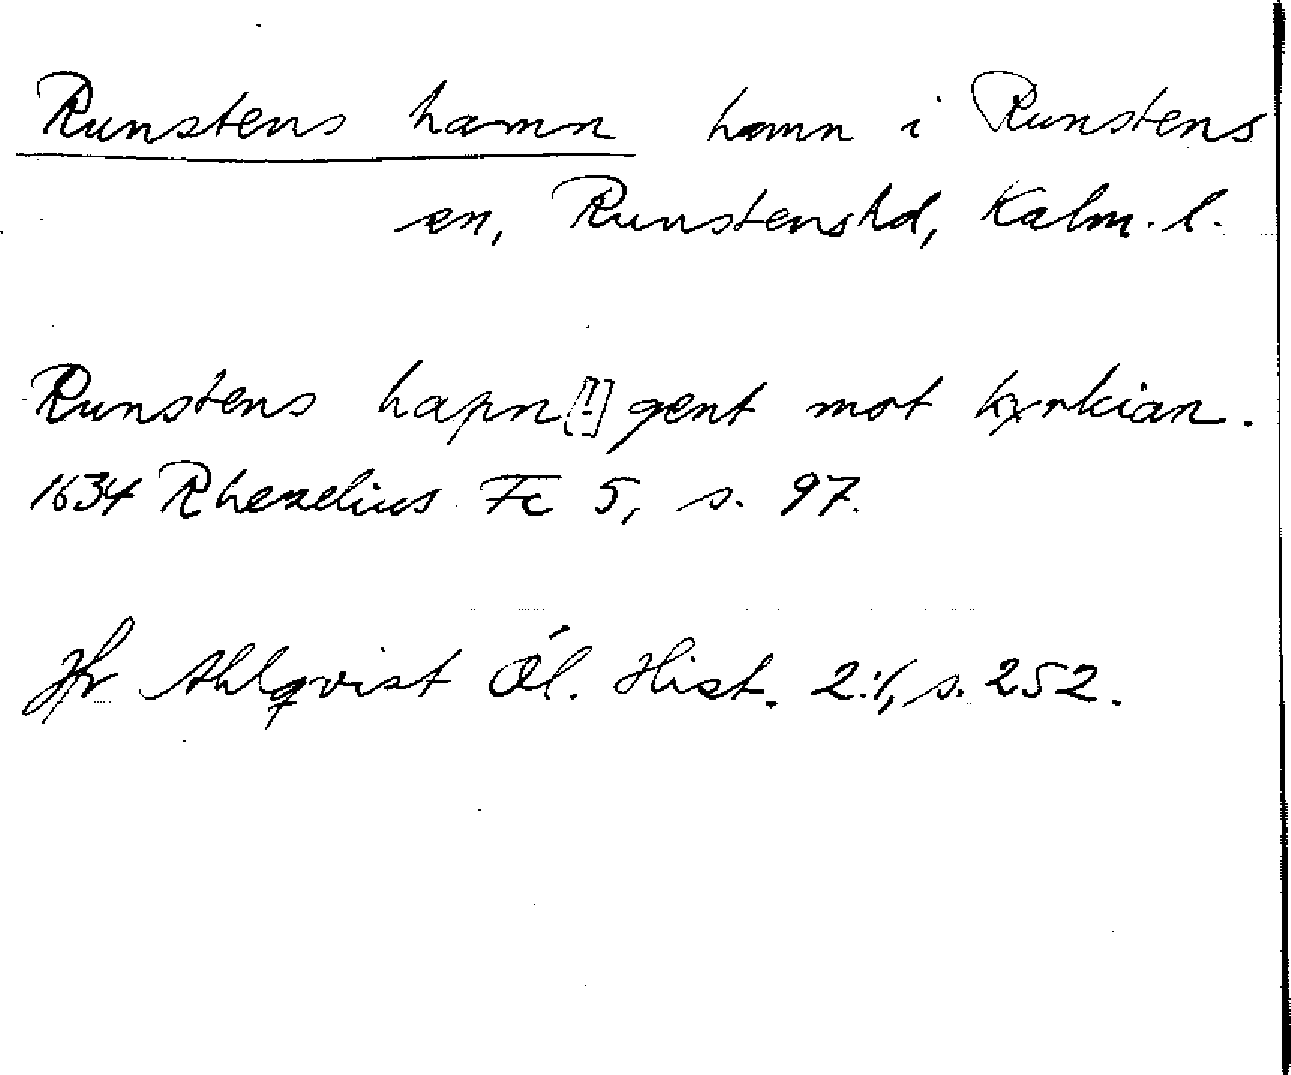 Runstens hamn hamn i Runstens
sn, Runstens hd, Kalm. l.
Runstens hapn [!] gent mot kyrkian.
1634 Rhezelius Fc 5, s. 97.
Jfr Ahlqvist Öl. Hist. 2:1, s. 252.